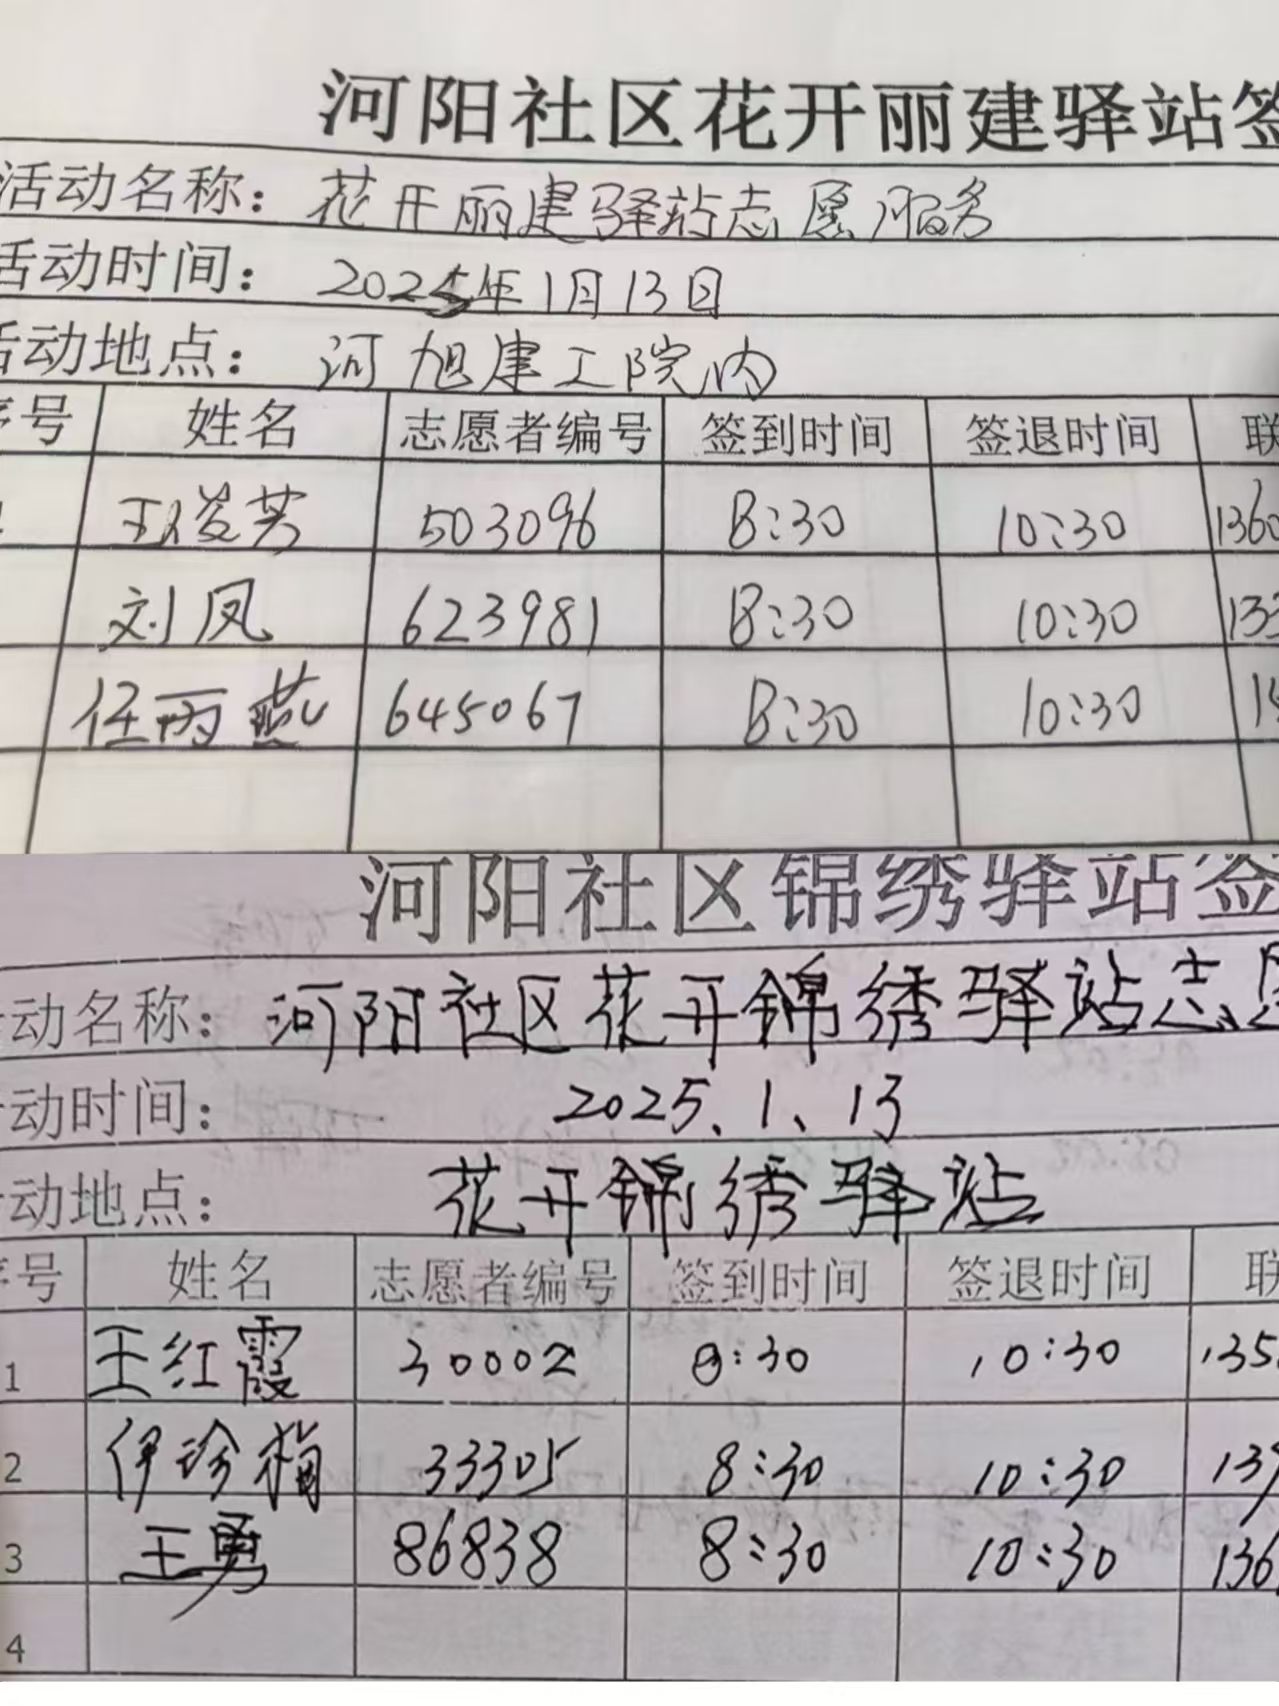 河阳社区花开丽建驿站签
活动名称：花开丽建驿站志愿服务
活动时间：2025年1月13日
活动地点：河旭建工院内
序号 姓名 志愿者编号 签到时间 签退时间 联
503096 8:30 10:30 1360
刘凤 623981 8:30 10:30 133
任丙燕 645067 8:30 10:30 15
河阳社区锦绣驿站签
活动名称：河阳社区花开锦绣驿站志愿
活动时间：2025、1、13
活动地点：花开锦绣驿站
序号 姓名 志愿者编号 签到时间 签退时间 联
1 王红霞 30002 8:30 10:30 135
2 伊珍梅 33305 8:30 10:30 137
3 王勇 86838 8:30 10:30 136
4